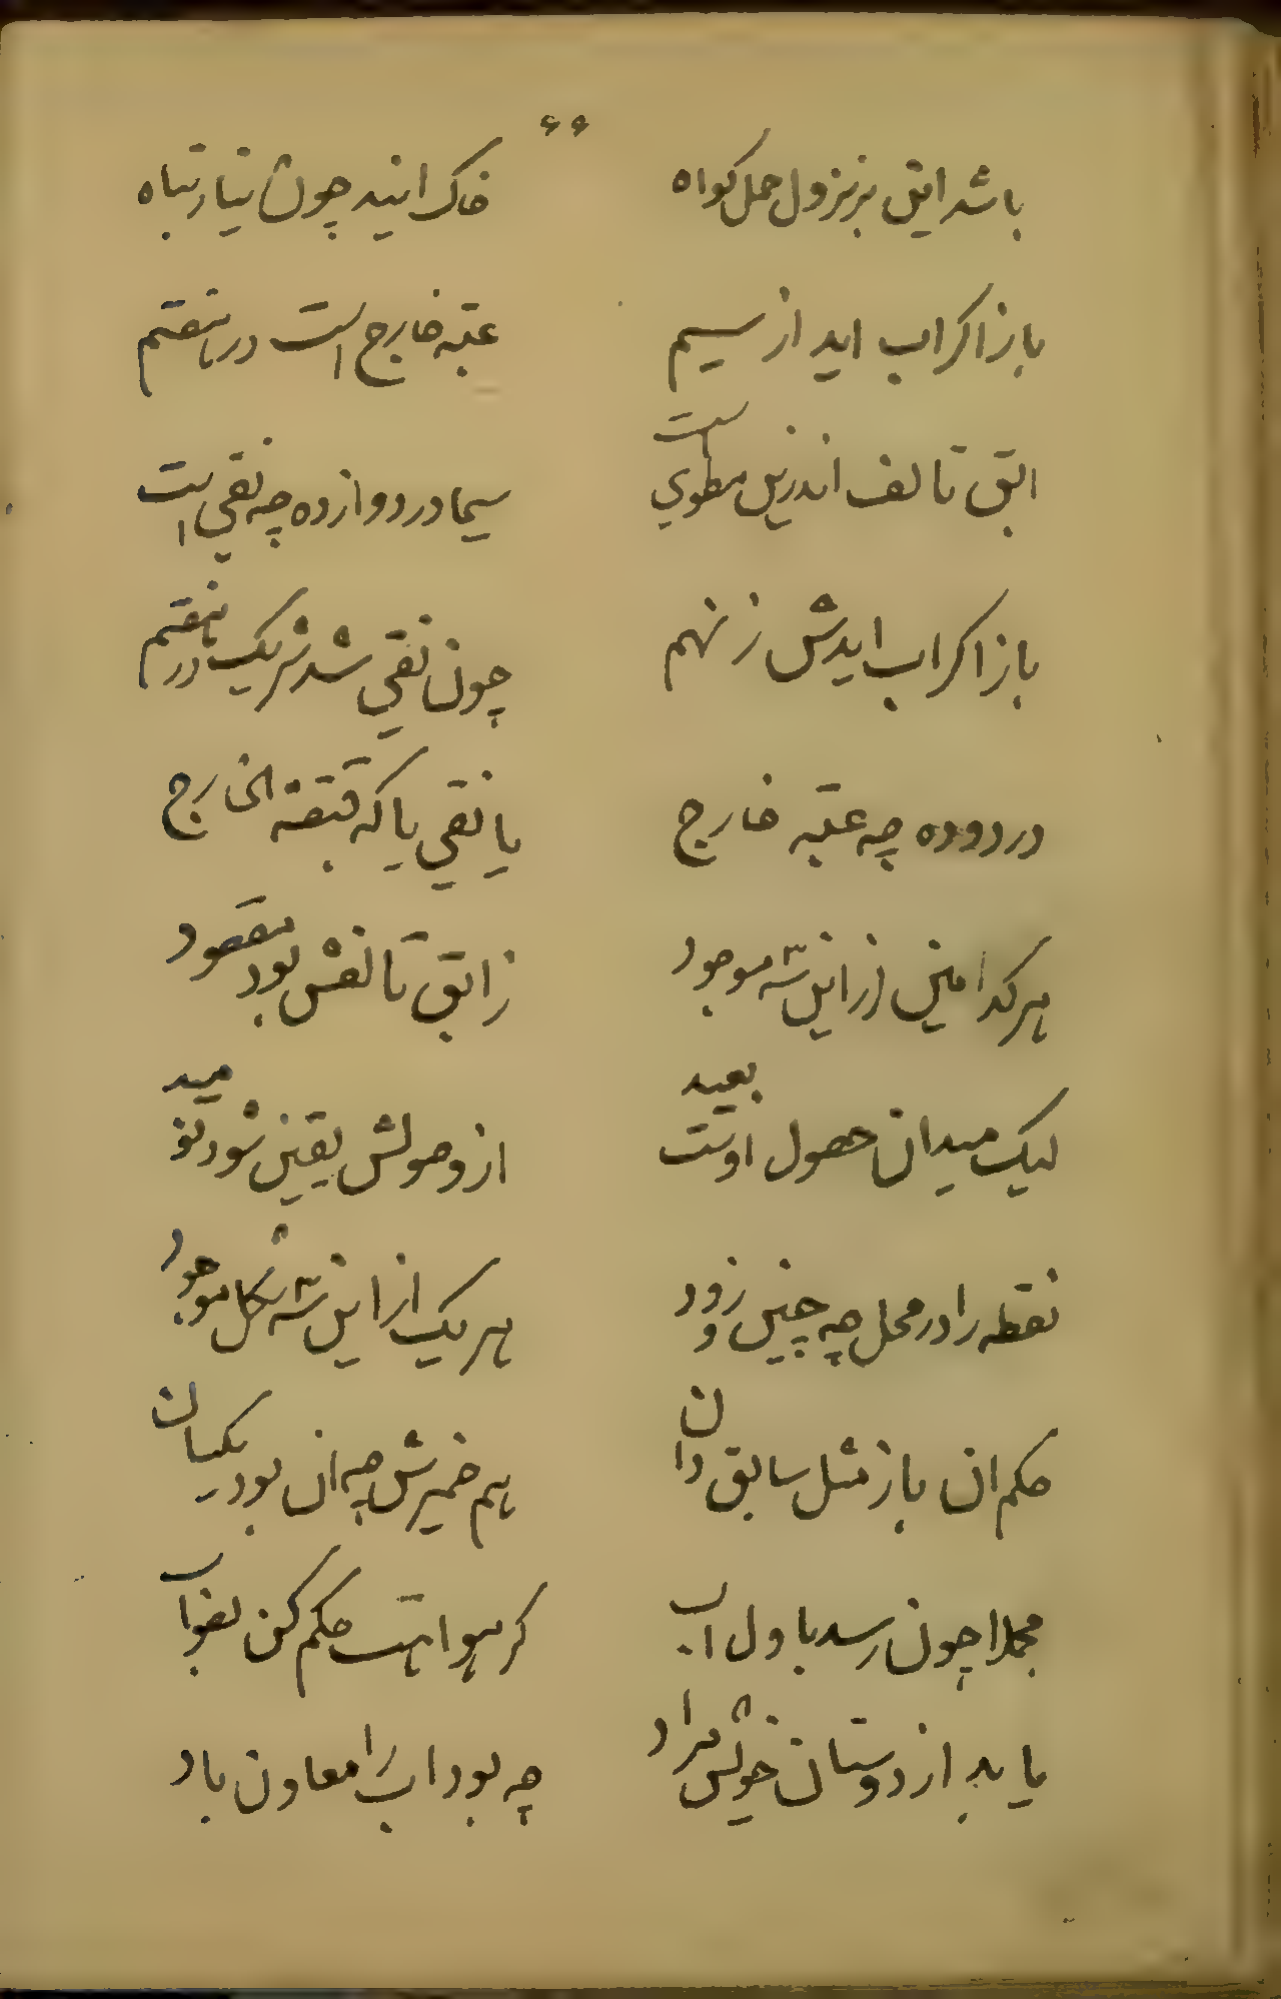 ۶۶
باشد ایق بر نزول حمل کواه خاک اینید چون نیار تباه
باز اکر اب اید از سیم عتبه خارج است در هفتم
ابق تا لف اندرین مطوی ست سیما در دوازده چه نقی است
باز اکر اب ایدش ز نهم چون نقی شد شریک در هفتم
در دوده چه عتبه خارج یا نقی یا که قبقة الخارج
هر کدامین از این سه موجود ز ابق تا لفش بود مقصود
لیک میدان حصول اوست بعید از وصولش یقین شود نومید
نقطه را در محل چه چنین ورود هر یک از این سه شکل موجود
حکم ان باز مثل سابق دان هم ضمیرش چه ان بود یکسان
مجملا چون رسد باول اب کر هوا هست حکم کن بصواب
یابد از دوستان خویش مراد چه بود اب را معاون باد